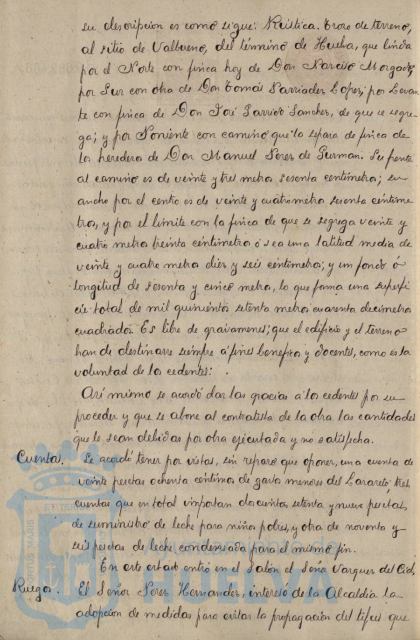 su descripcion es como sigue: Rústica. Trozo de terreno,
al sitio de Valbueno, del término de Huelva, que linda
por el Norte con finca hoy de Don Narciso Morgado;
por Sur con otra de Don Tomás Barriades Lopez; por Levan-
te con finca de Don José Garrido Sanchez, de que se segre-
ga; y por Poniente con camino que la separa de finca de
los herederos de Don Manuel Perez de Guzman. Su frente
al camino es de veinte y tres metros sesenta centimetros; su
ancho por el centro es de veinte y cuatro metros sesenta centime-
tros, y por el limite con la finca de que se segrega veinte y
cuatro metros treinta centimetros ó sea una latitud media de
veinte y cuatro metros diez y seis centimetros; y un fondo ó
longitud de sesenta y cinco metros, lo que forma una superfi-
cie total de mil quinientos setenta metros cuarenta decimetros
cuadrados. Es libre de gravamenes; que el edificio y el terreno
han de destinarse siempre á fines benéficos y docentes, como es la
voluntad de los cedentes.
Asi mismo se acordó dar las gracias á los cedentes por su
proceder y que se abone al contratista de la obra las cantidades
que le sean debidas por obra ejecutada y no satisfecha.
Cuentas. Se acordó tener por vistas, sin reparos que oponer, una cuenta de
veinte pesetas ochenta centimos de gastos menores del Lazareto, tres
cuentas que en total importan doscientas setenta y nueve pesetas,
de suministro de leche para niños pobres, y otra de noventa y
seis pesetas de leche condensada para el mismo fin.
En este estado entró en el Salón el Señor Vazquez del Cid.
Ruegos. El Señor Perez Hernandez, interesó de la Alcaldia la
adopcion de medidas para evitar la propagación del tifus que